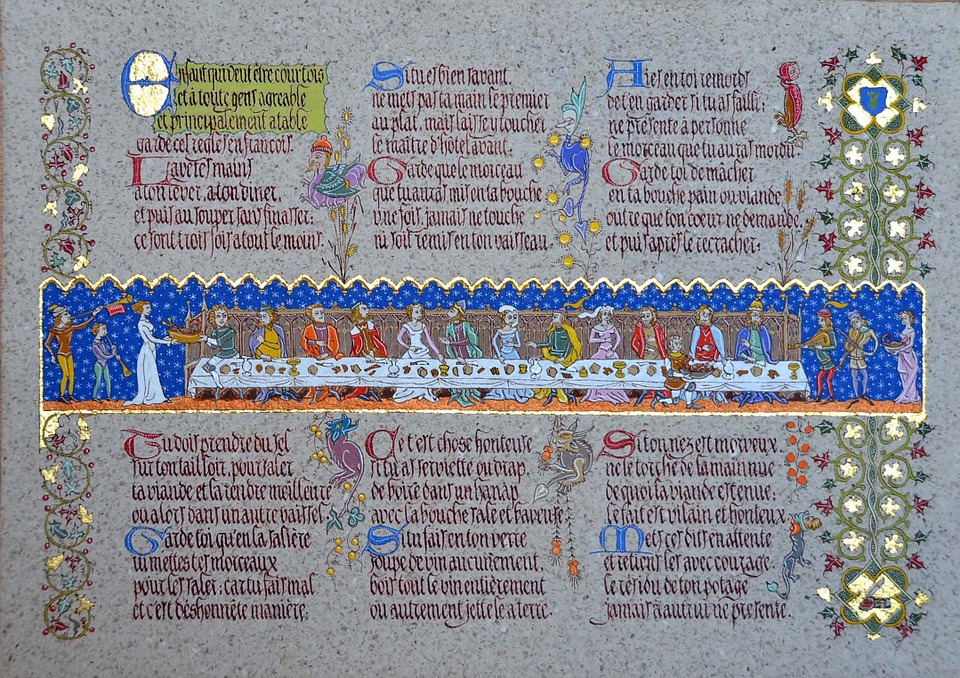 Enfant qui veut être courtois
et à toute gens agreable
et principalement a table
garde ces regles en francois
Lave tes mains
a ton lever, a ton diner,
et puis au souper sans finasser:
ce sont trois fois a tout le moins.
Si tu es bien savant.
ne mets pas ta main le premier
au plat, mais laisse y toucher
le maître d'hôtel avant.
Garde que le morceau
que tu auras mis en ta bouche
une fois, jamais ne touche
ni soit remis en ton vaisseau.
Aies en toi remords
de t'en garder si tu as failli;
ne présente à personne
le morceau que tu auras mordu.
Garde toi de mâcher
en ta bouche pain ou viande
outre que ton coeur ne demande,
et puis apres le recracher;
Tu dois prendre du sel
sur ton tailloir, pour saler
ta viande et la rendre meilleure
ou alors dans un autre vaissel
Garde toi qu'en la salière
tu mettes tes morceaux
pour les saler: car tu fais mal
et c'est déshonnête manière;
C'est chose honteuse
si tu as serviette ou drap
de boire dans un hanap
avec la bouche sale et baveuse
Si tu fais en ton verre
soupe de vin aucunement.
bois tout le vin entièrement
ou autrement jette le a terre.
Si ton nez est morveux
ne le torche de la main nue
de quoi la viande est tenue:
le fait est vilain et honteux
Mets ces dits en attente
et retiens les avec courage.
le résidu de ton potage
jamais à autrui ne présente.